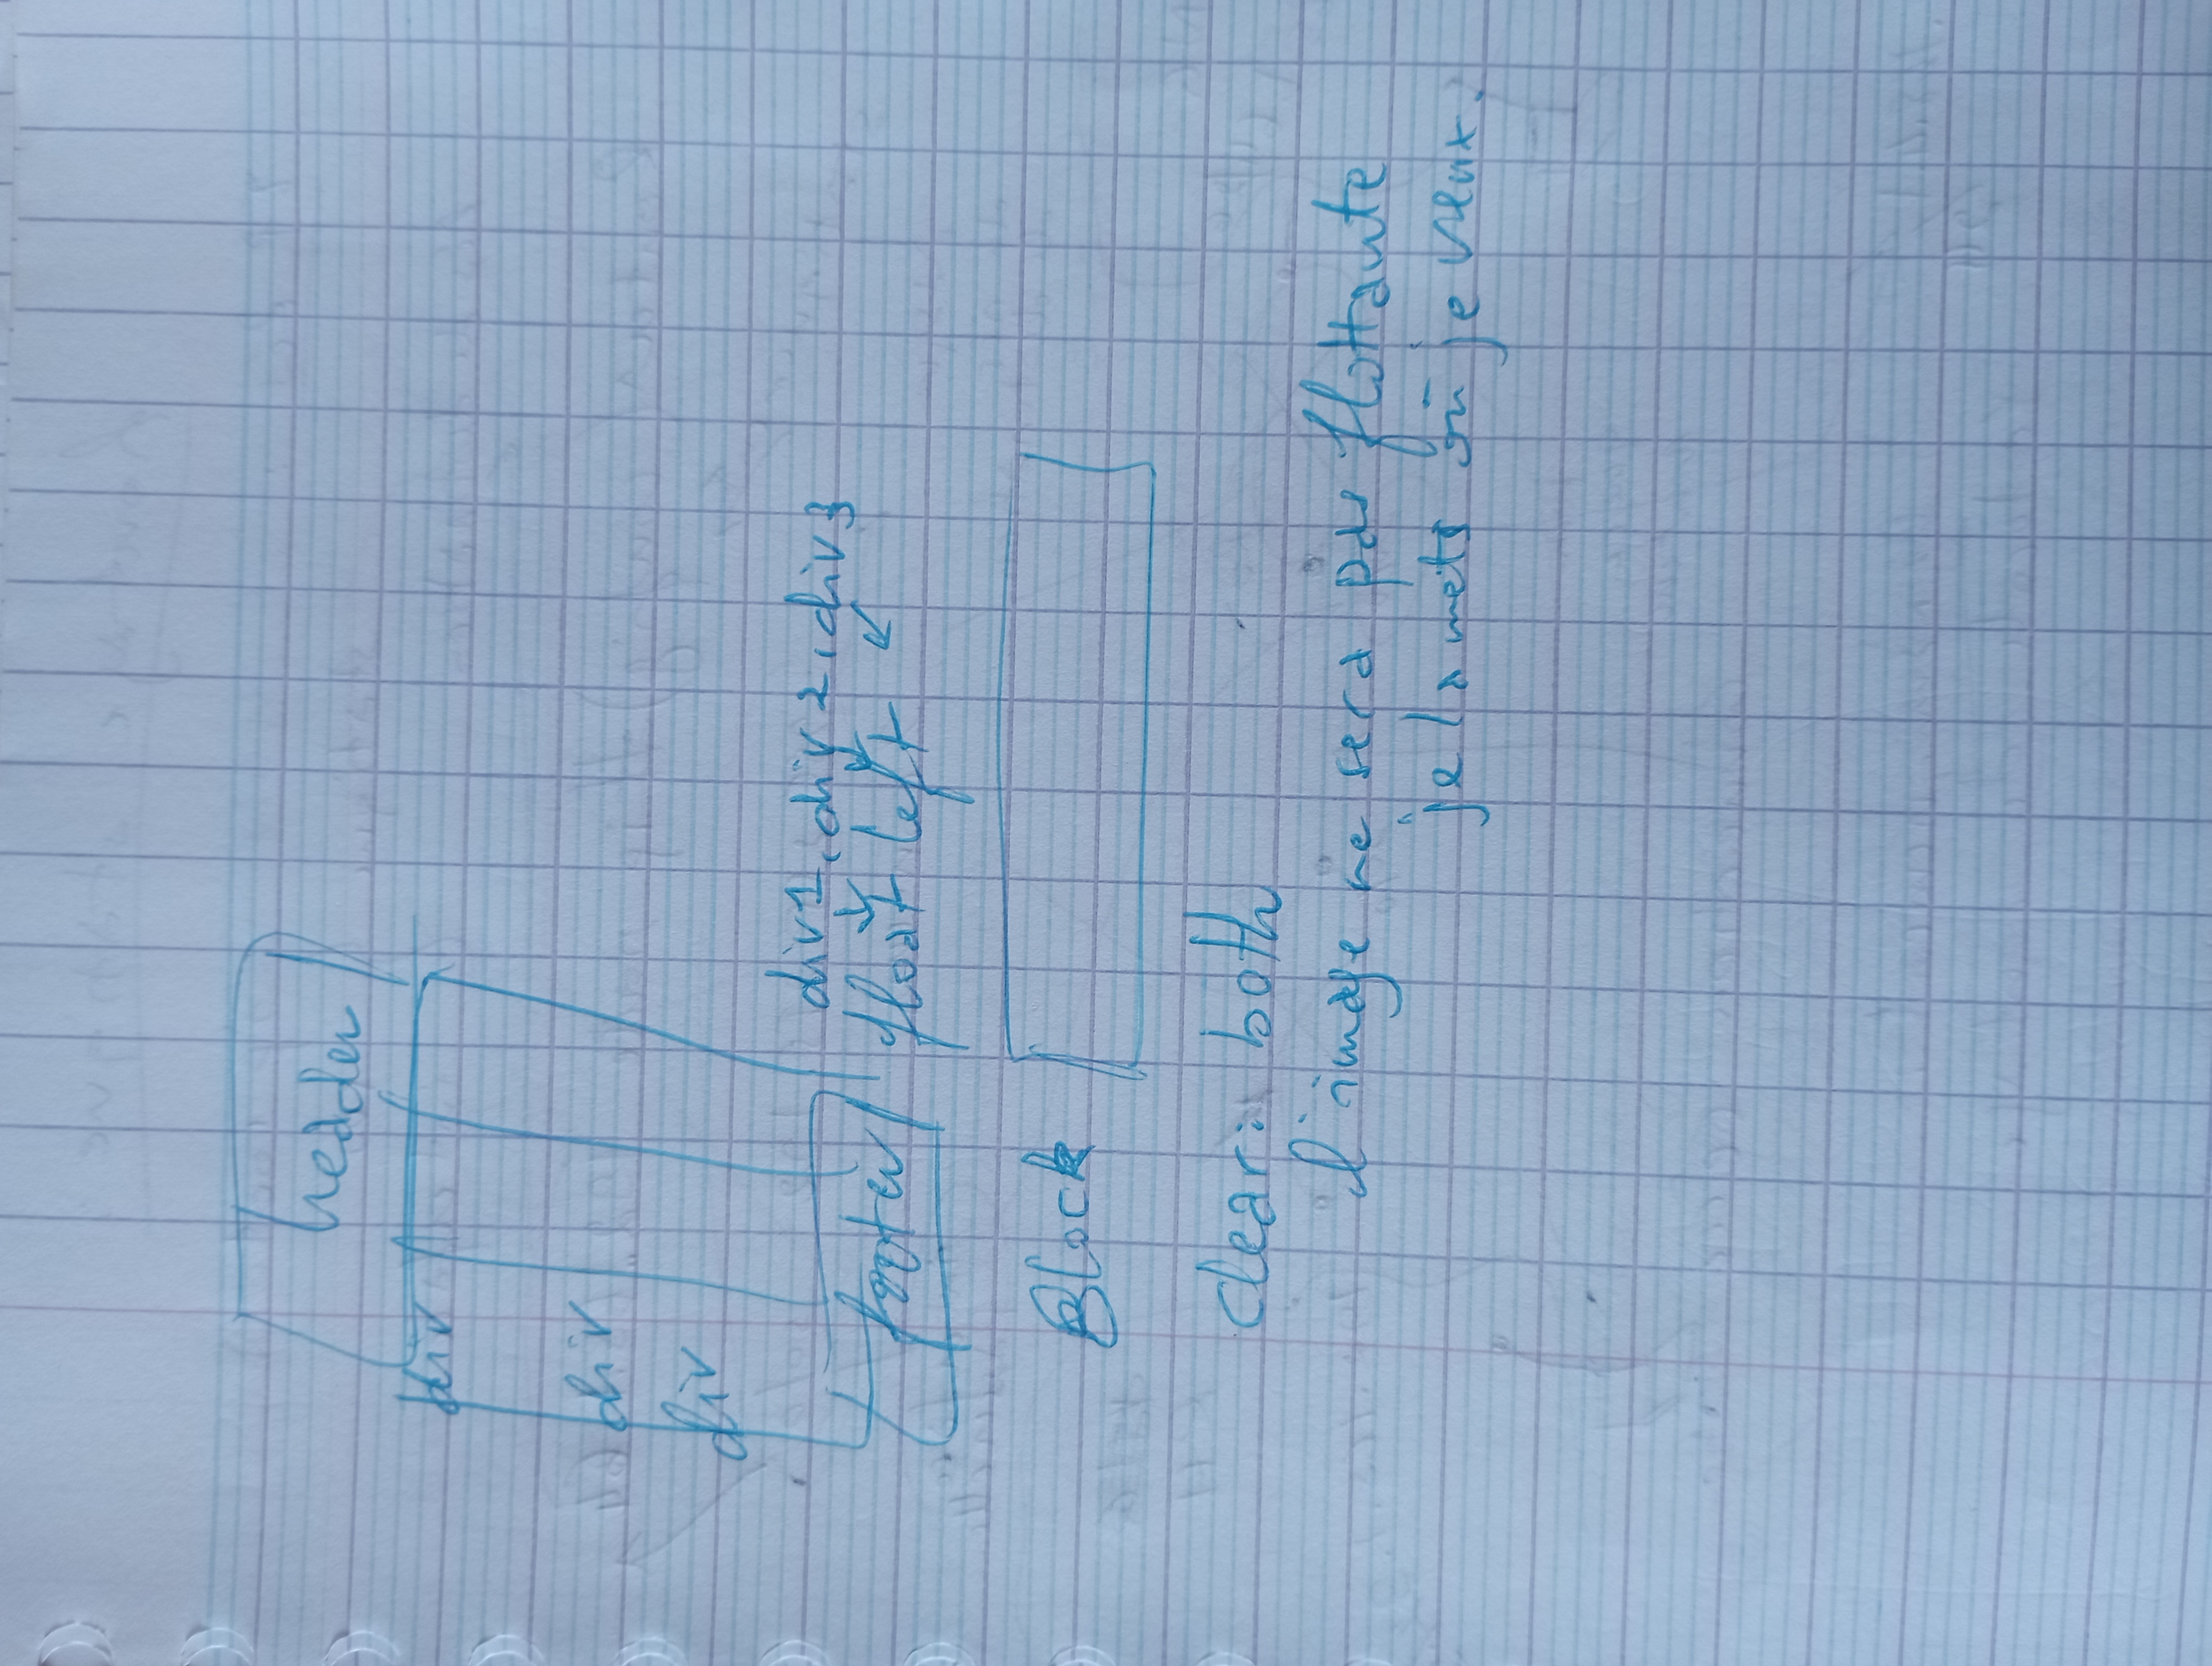 header
div
div
div
div1, div2, div3
footer float left
Block
clear: both
l'image ne sera pas flottante
je la mets où je veux.